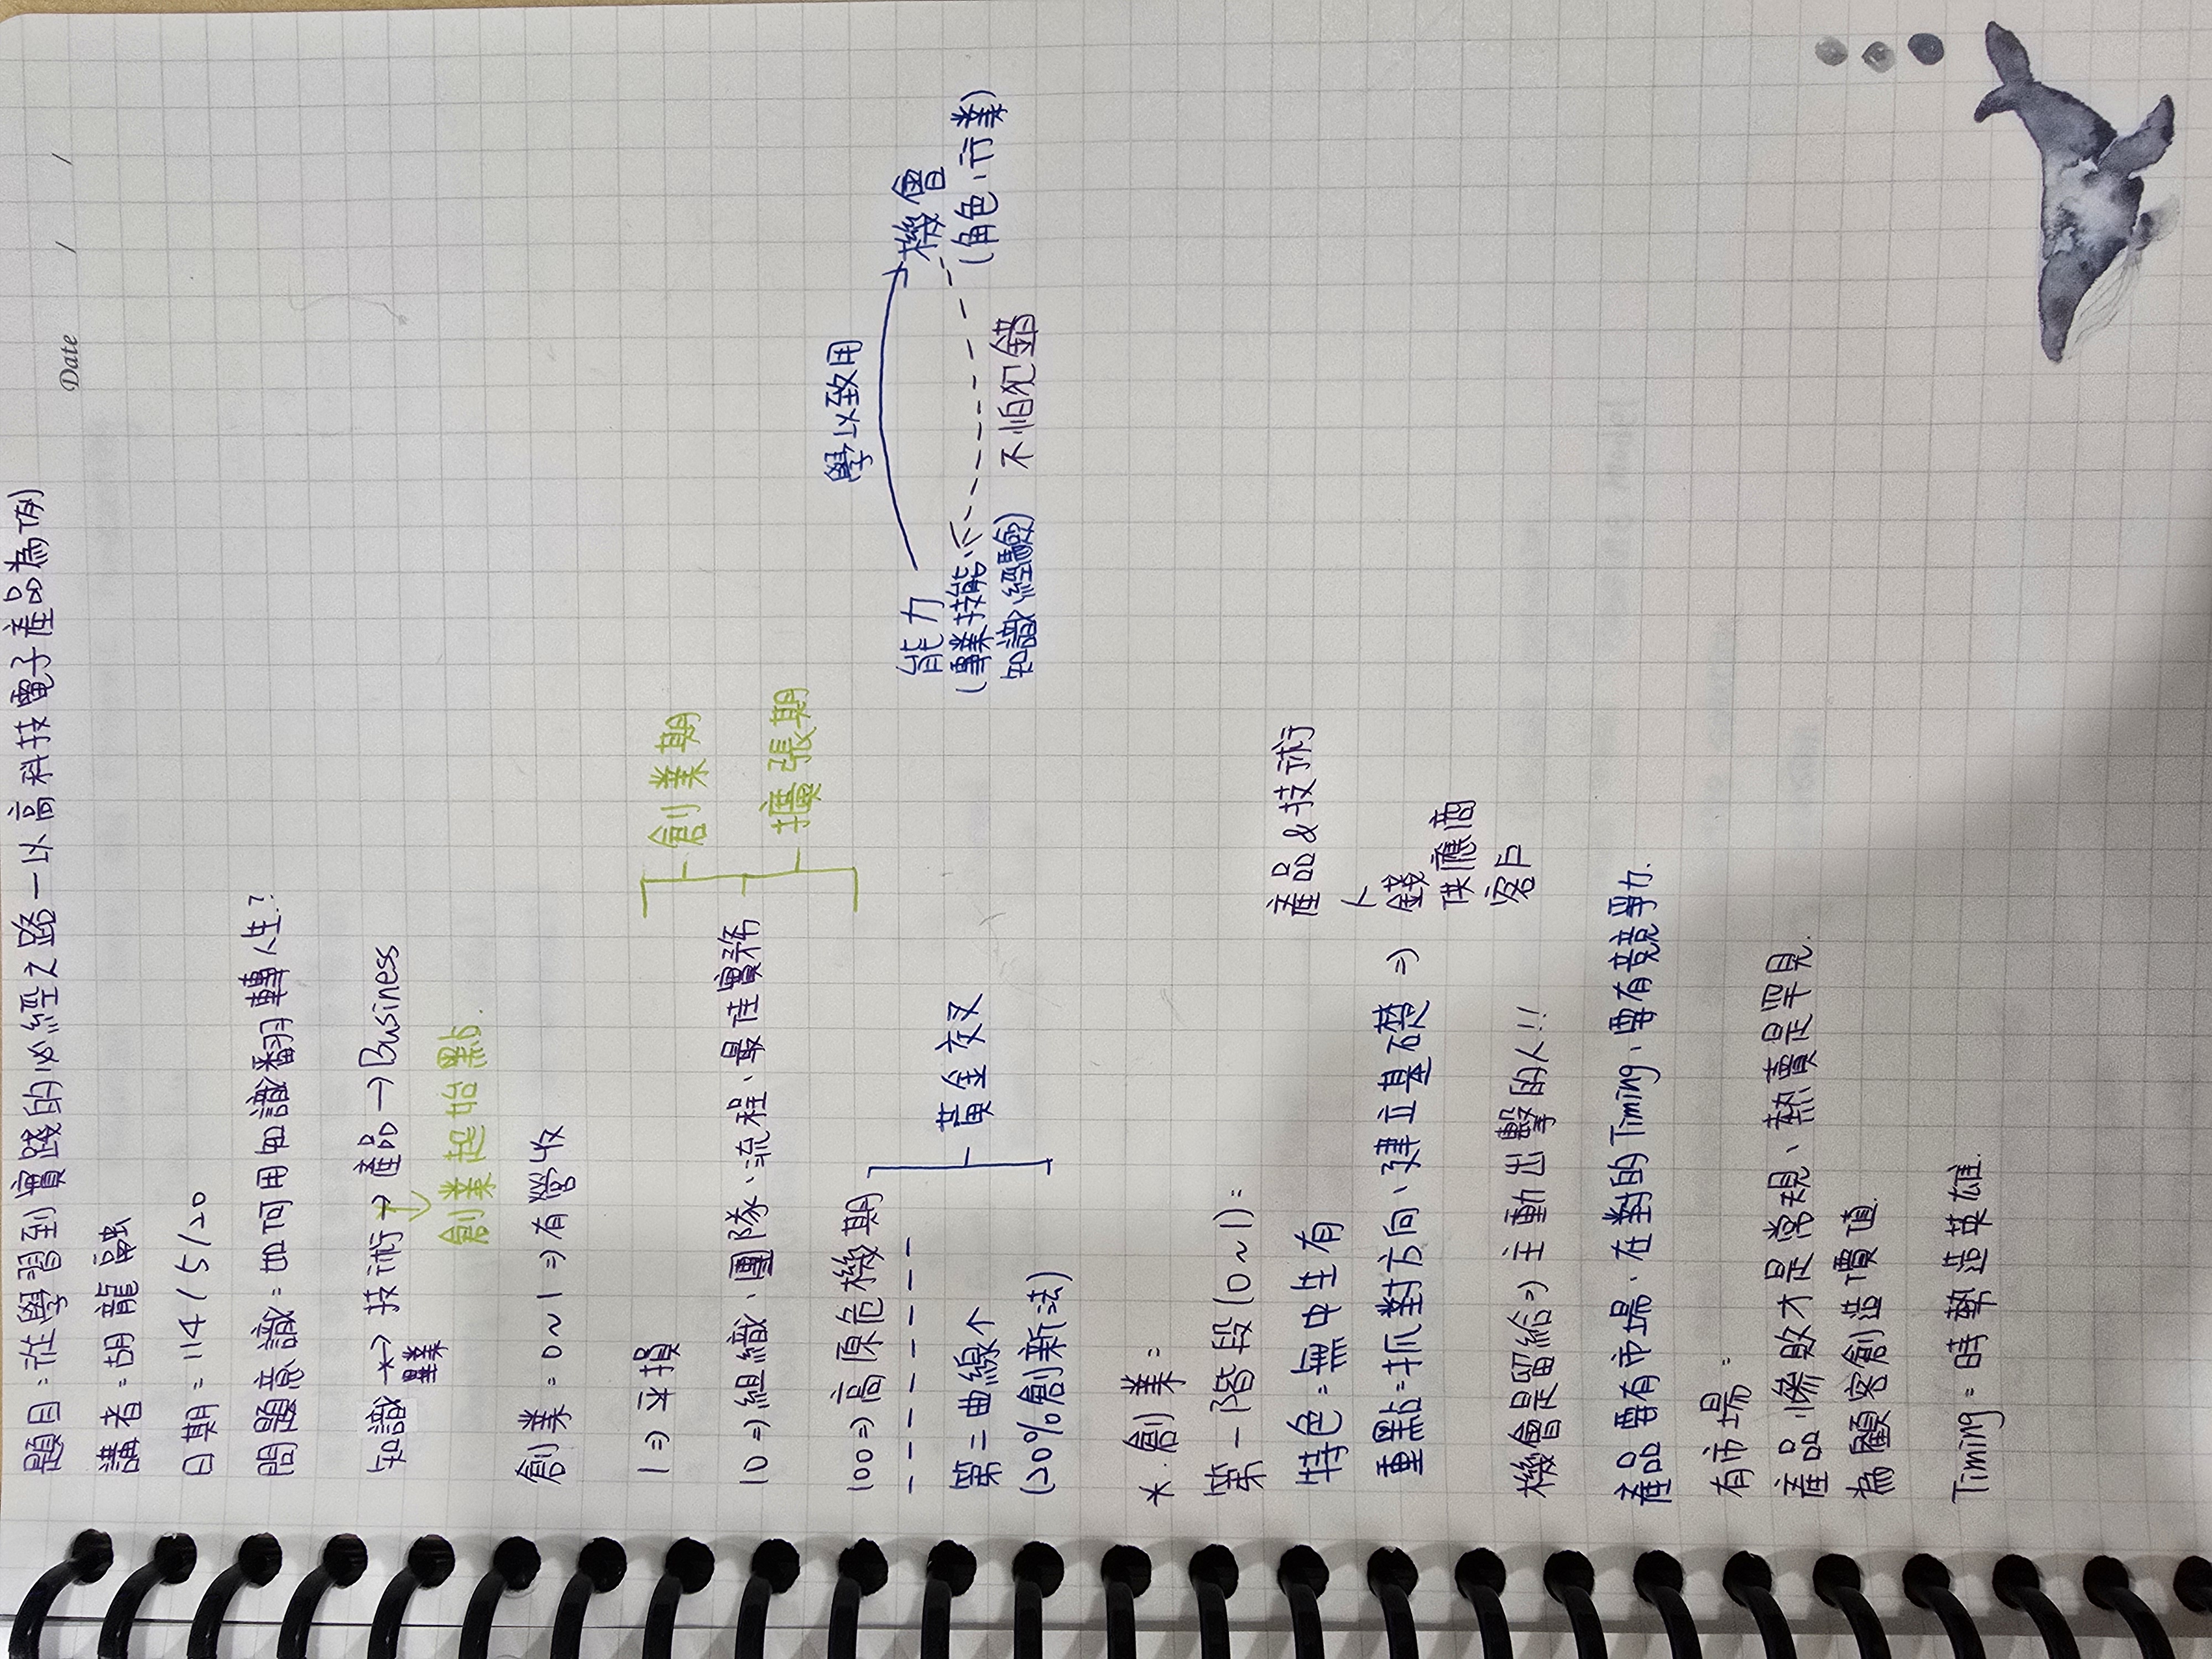 題目:從學習到實踐的必經之路-以高科技電子產品為例
Date / /
講者:胡龍融
日期:114/5/20
問題意識:如何用知識翻轉人生?
知識→技術→產品→Business
畢業
創業起始點.
創業:0~1⇒有營收
1⇒平損
創業期
10⇒組織、團隊、流程、最佳實務
擴張期
100⇒高原危機期
第二曲線↑
(20%創新法)
黃金交叉
學以致用
能力
機會
(專業技能、
知識、經驗)
(角色、行業)
不怕犯錯
*.創業:
第一階段(0~1):
特色:無中生有
重點:抓對方向、建立基礎⇒
產品&技術
人
錢
供應商
客戶
機會是留給⇒主動出擊的人!!
產品要有市場、在對的Timing、要有競爭力.
有市場:
產品慘敗才是常規、熱賣是罕見.
為顧客創造價值.
Timing:時勢造英雄.